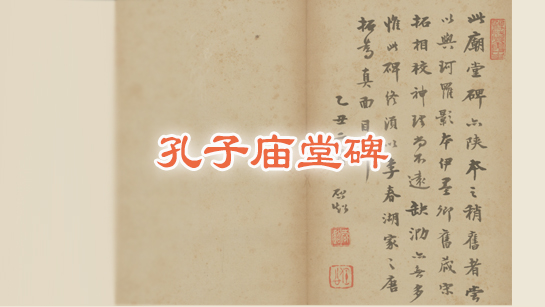 孔子庙堂碑
此廟堂碑亦陝本之稍舊者嘗
以與珂羅影本伊墨卿舊藏宋
拓相校神理尚不遠缺泐亦無多
惟此碑終須以李春湖家之唐
拓為真面目
乙丑